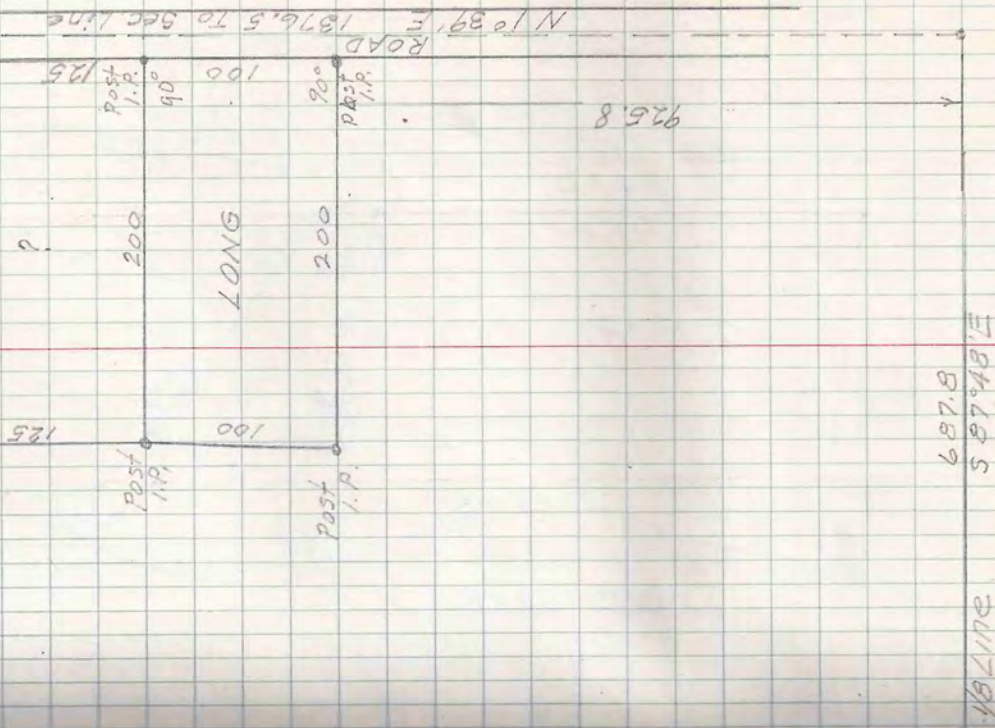 N 1° 39' E 1376.5 TO Sec. Line
ROAD
125
Post
I.P.
90°
100
90°
Post
I.P.
925.8
?
200
LONG
200
125
Post
I.P.
100
Post
I.P.
687.8
S 87° 48' E
1/8 LINE